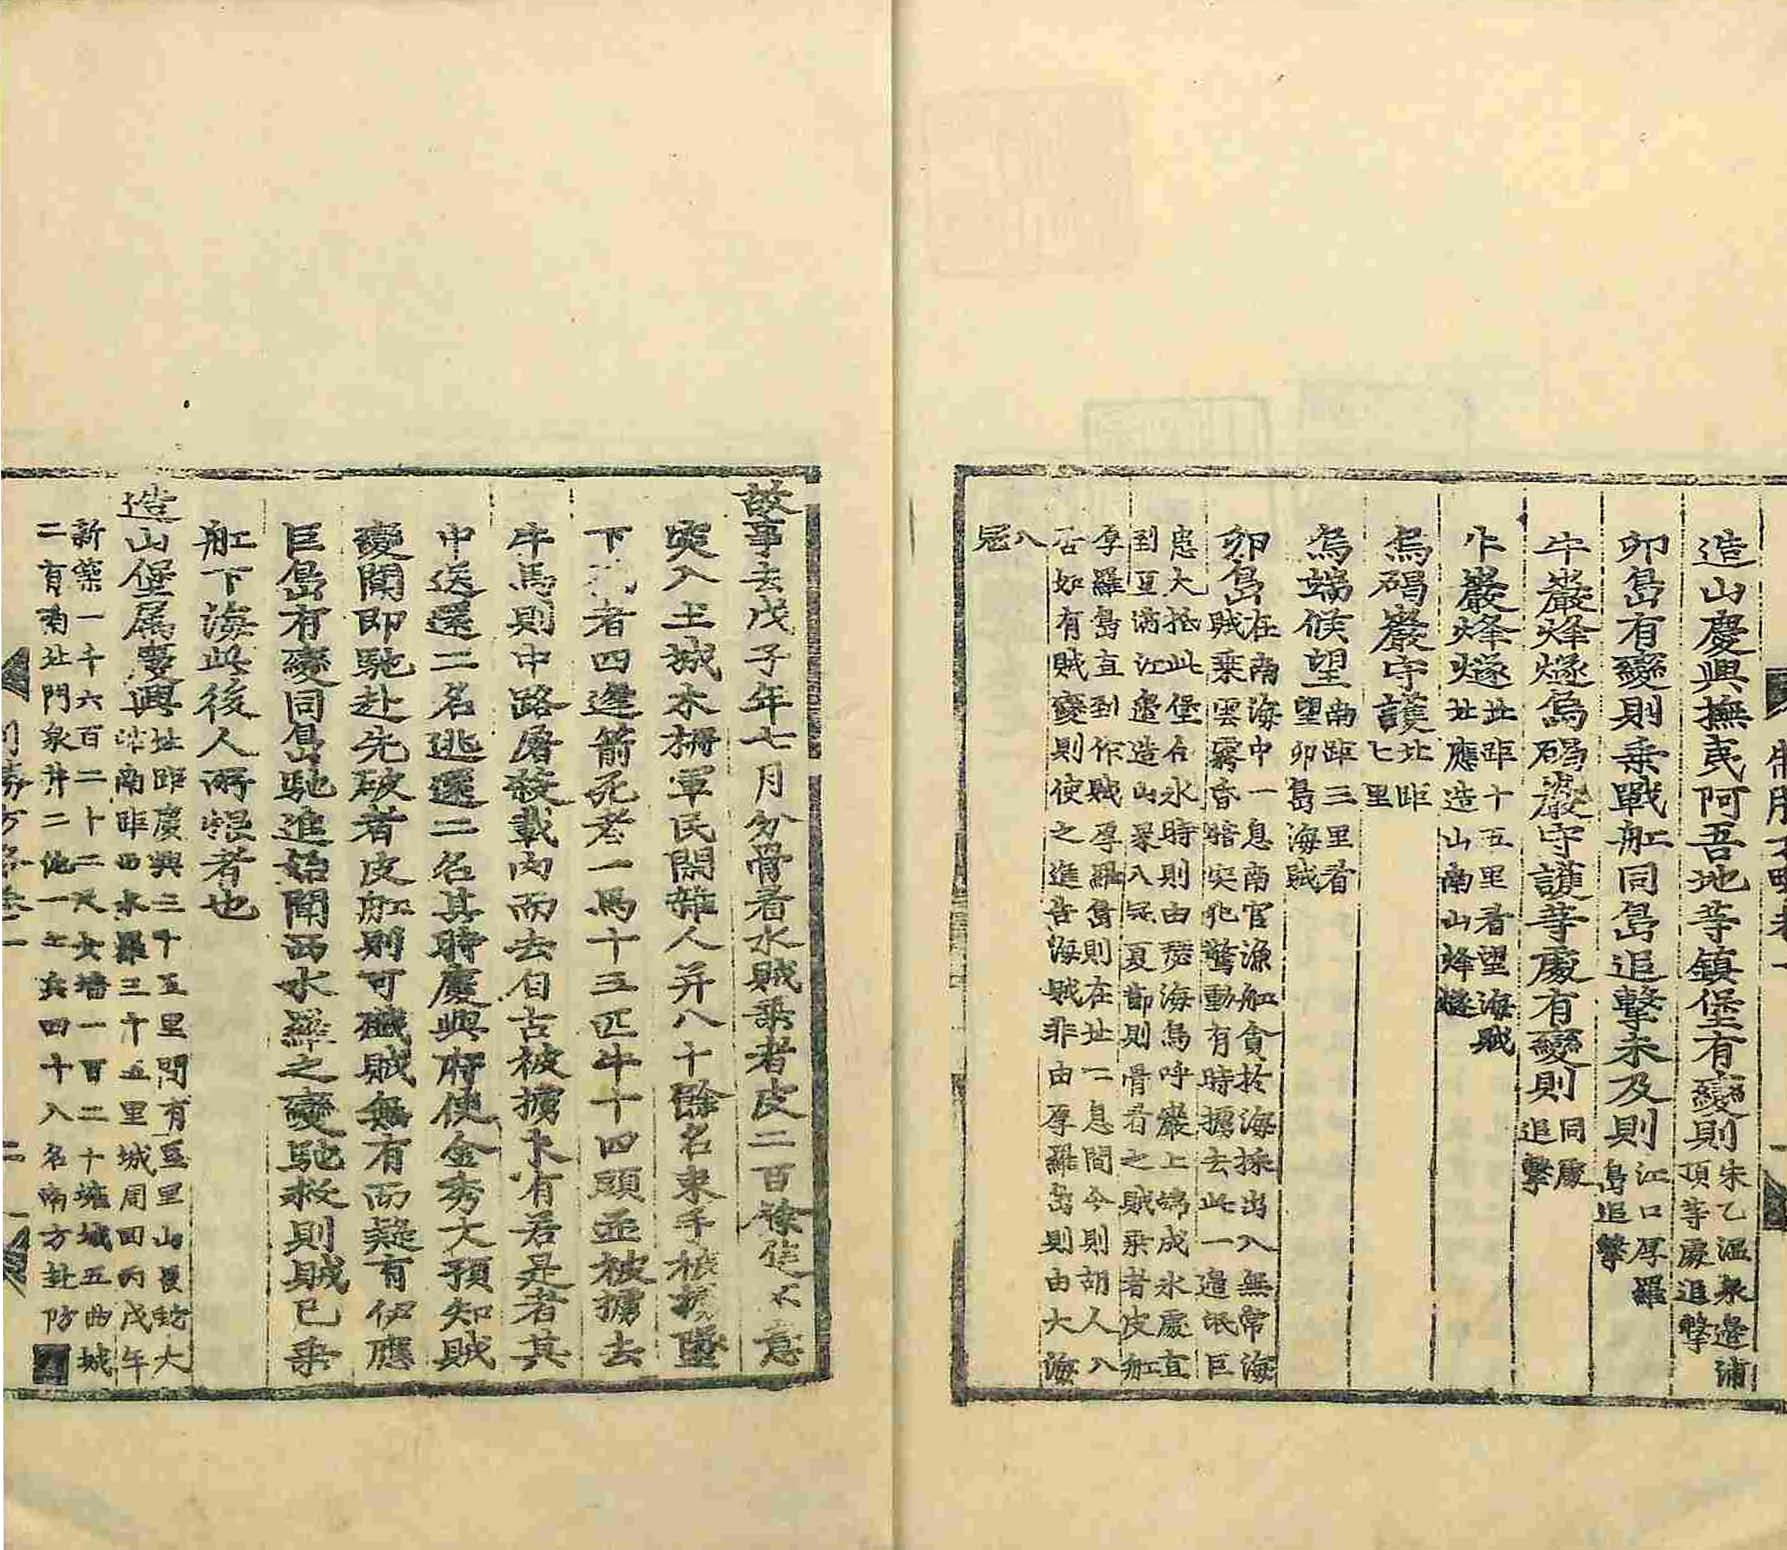 制勝方略卷一
造山慶興撫夷阿吾地等鎮堡有變則朱乙溫泉邊浦
項等處追擊
卯島有變則乘戰舡同島追擊未及則江口厚羅
島追擊
牛巖烽燧烏碣巖守護等處有變則同處
追擊
牛巖烽燧北距十五里看望海賊
北應造山南山烽燧
烏碣巖守護北距
七里
烏端候望南距三里看
望卯島海賊
卯島在南海中一息南官漁舡貪於海採出入無常海
賊乘雲霧昏暗突犯驚動有時擄去此一邊氓巨
患大抵此堡合氷時則由瑟海烏呼巖上端成氷處直
到豆滿江邊造山冞入冠夏節則骨看之賊乘者皮舡
厚羅島直到作賊厚羅島則在北一息間今則胡人入
居如有賊變則使之進告海賊非由厚羅島則由大海
入
冠
故事去戊子年七月分骨看水賊乘者皮二百餘隻不意
突入土城木柵軍民閑雜人并八十餘名束手被擄墜
下死者四逢箭死者一馬十五匹牛十四頭並被擄去
牛馬則中路屠殺載肉而去自古被擄未有若是者其
中送還二名逃還二名其時慶興府使金秀大預知賊
變聞即馳赴先破者皮舡則可殲賊無有而疑有伊應
巨島有變同島馳進始聞西水羅之變馳救則賊已乘
舡下海此後人所恨者也
造山堡屬慶興北距慶興三十五里間有豆里山 大
南距西水羅三十五里城周回丙戌年
新築一千六百二十二尺女墻一百二十 城五曲城
二有南北門泉井二池一土兵四十八名南方赴防